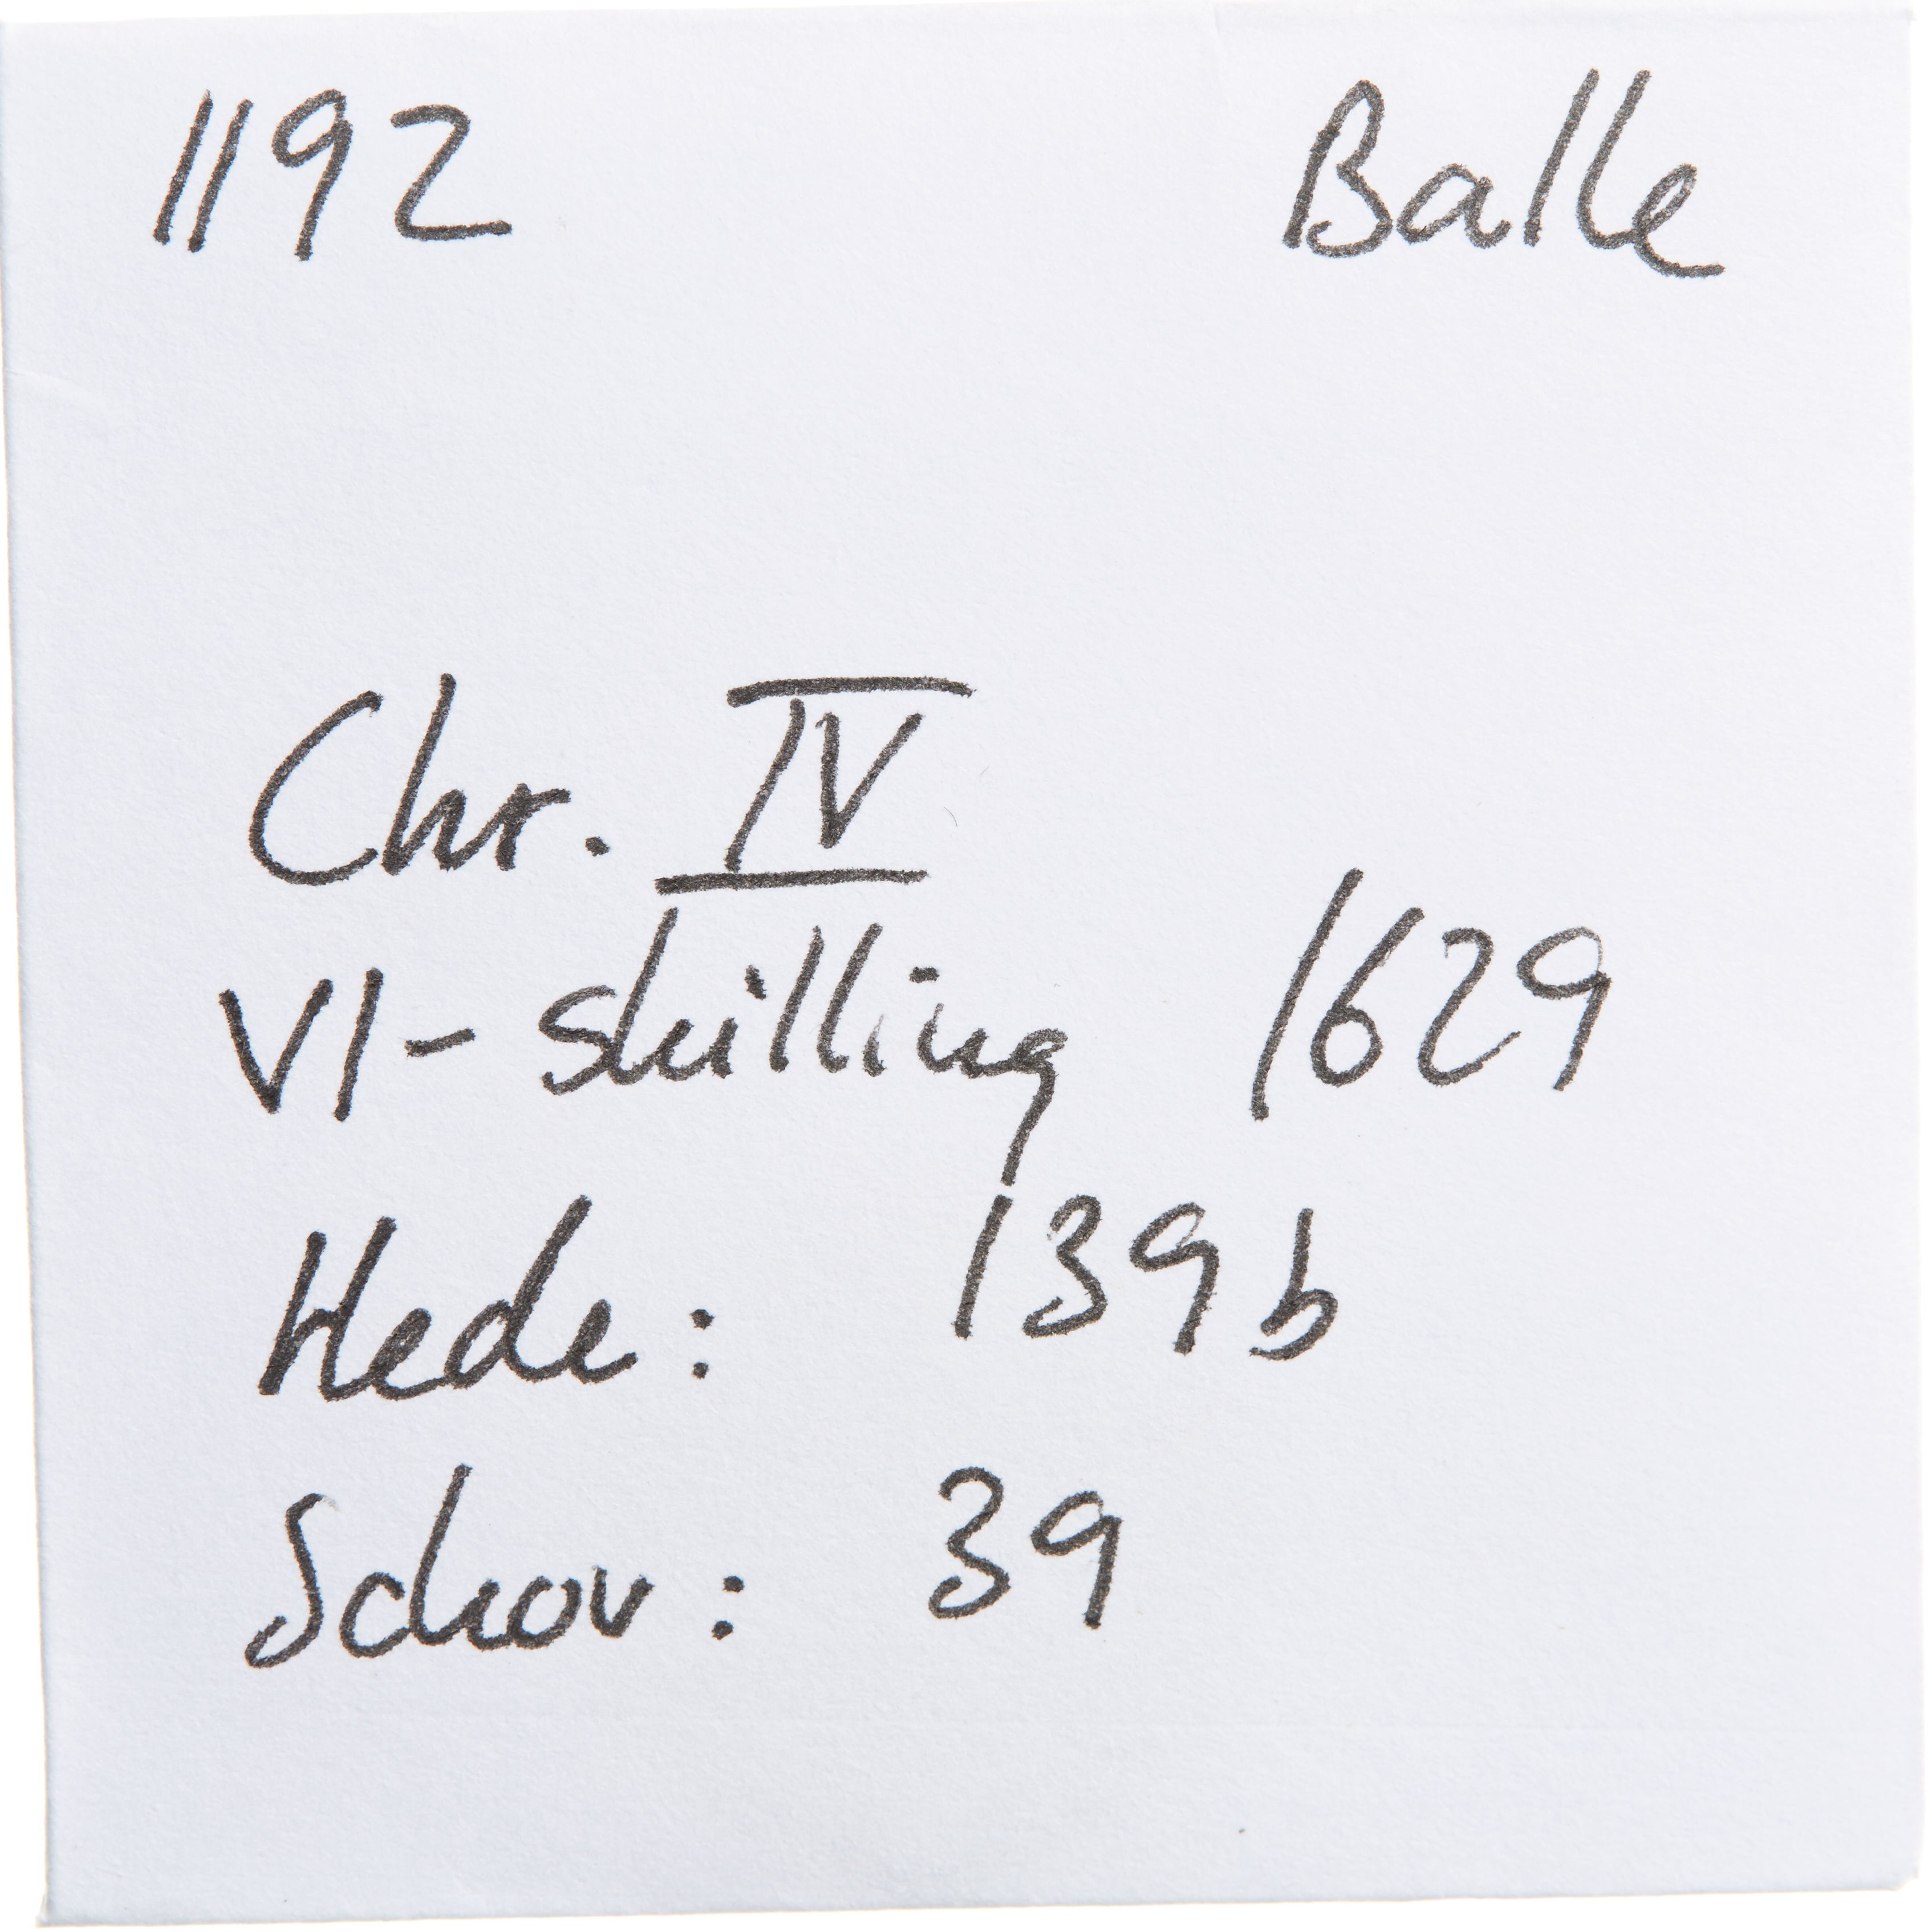 1192 Balle
Chr. IV
VI- skilling 1629
Hede: 139b
Schou: 39